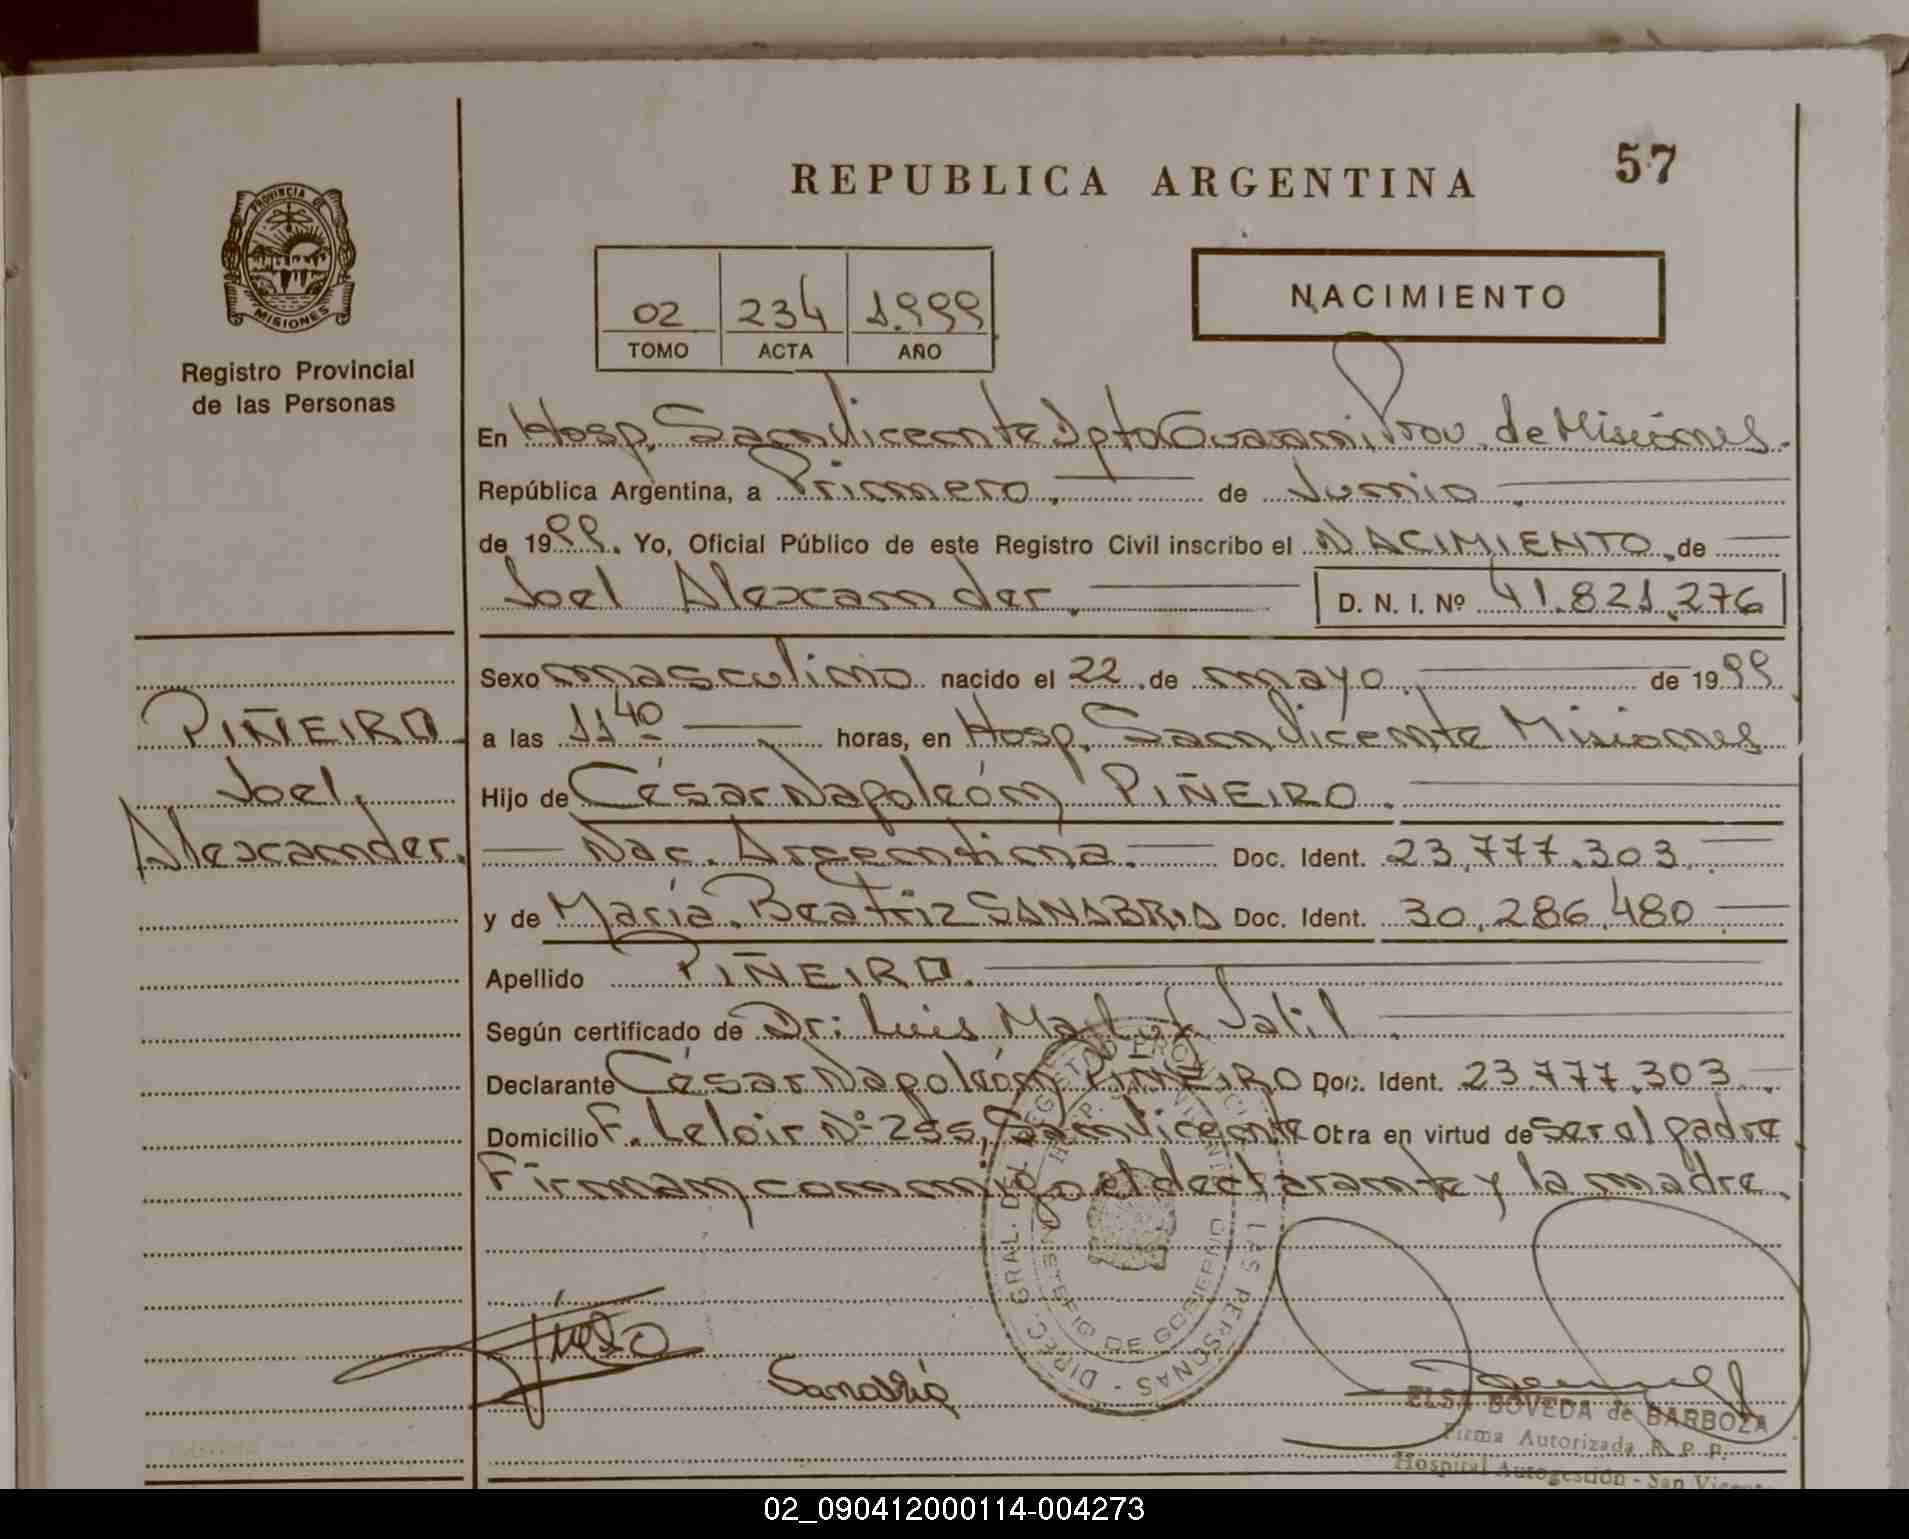 REPUBLICA ARGENTINA
57
PROVINCIA DE
MISIONES
Registro Provincial
de las Personas
02 234 1.999
TOMO ACTA AÑO
NACIMIENTO
En Hosp. San Vicente Dpto Guaraní Prov. de Misiones.
República Argentina, a Primero. de Junio.
de 1999. Yo, Oficial Público de este Registro Civil inscribo el NACIMIENTO, de
Joel Alexander.
D. N. I. Nº 41.821.276
PIÑEIRO
Joel
Alexander.
Sexo masculino nacido el 22 de mayo. de 1999
a las 11 40 horas, en Hosp. San Vicente Misiones
Hijo de César Napoleón PIÑEIRO.
Nac. Argentina. Doc. Ident. 23.777.303
y de María Beatriz SANABRIA Doc. Ident. 30.286.480
Apellido PIÑEIRO.
Según certificado de Dr: Luis Jalil
Declarante César Napoleón PIÑEIRO Doc. Ident. 23.777.303
Domicilio F. Leloir Nº 255, San Vicente Obra en virtud de ser el padre
Firman conmigo el declarante y la madre.
DIREC. GRAL. DEL REGISTRO PROVINCIAL DE LAS PERSONAS
HOSP. SAN VICENTE
MINISTERIO DE GOBIERNO
Sanabria
ELSA BOVEDA de BARBOZA
Firma Autorizada R. P. P.
Hospital Autogestión - San Vicente
02_090412000114-004273